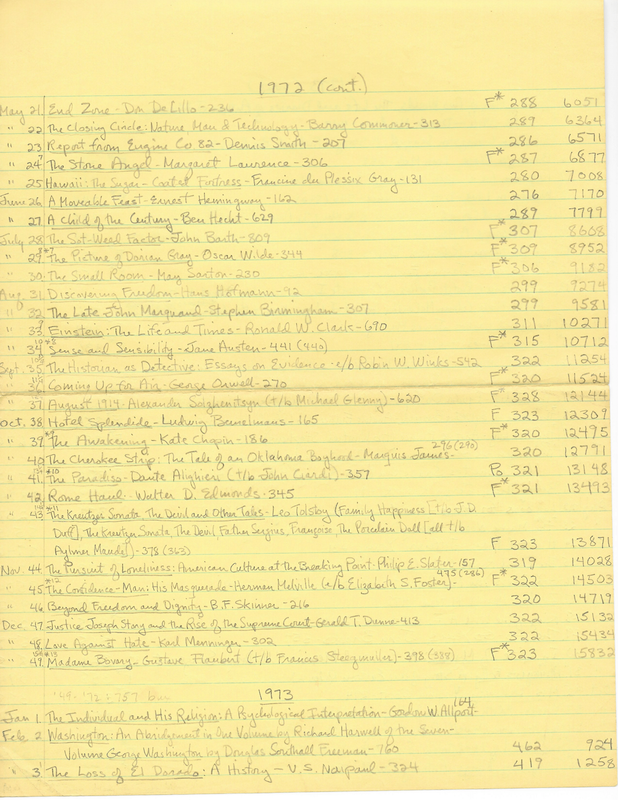 1972 (cont.)
May 21 End Zone - Don DeLillo - 236 F* 288 6051
" 22 The Closing Circle: Nature Man & Technology - Barry Commoner - 313 289 6364
" 23 Report from Engine Co 82 - Dennis Smith - 207 286 6571
" 24 The Stone Angel - Margaret Lawrence - 306 F* 287 6877
" 25 Hawaii: The Sugar-Coated Fortress - Francine du Plessix Gray - 131 280 7008
June 26 A Moveable Feast - Ernest Hemingway - 162 276 7170
" 27 A Child of the Century - Ben Hecht - 629 289 7799
July 28 The Sot-Weed Factor - John Barth - 809 F* 307 8608
" 29 The Picture of Dorian Gray - Oscar Wilde - 344 F* 309 8952
" 30 The Small Room - May Sarton - 230 F* 306 9182
Aug. 31 Discovering Freedom - Hans Hofmann - 92 299 9274
" 32 The Late John Marquand - Stephen Birmingham - 307 299 9581
" 33 Einstein: The Life and Times - Ronald W. Clark - 690 311 10271
" 34 Sense and Sensibility - Jane Austen - 441 (440) F* 315 10712
Sept. 35 The Historian as Detective: Essays on Evidence - e/b Robin W. Winks - 542 322 11254
" 36 Coming Up for Air - George Orwell - 270 F* 320 11524
" 37 August 1914 - Alexander Solzhenitsyn (t/b Michael Glenny) - 620 F* 328 12144
Oct. 38 Hotel Splendide - Ludwig Bemelmans - 165 F 323 12309
" 39 The Awakening - Kate Chopin - 186 F* 320 12495
" 40 The Cherokee Strip: The Tale of an Oklahoma Boyhood - Marquis James - 296 (290) 320 12791
" 41 The Paradiso - Dante Alighieri (t/b John Ciardi) - 357 Po 321 13148
" 42 Rome Haul - Walter D. Edmonds - 345 F* 321 13493
" 43 The Kreutzer Sonata, The Devil and Other Tales - Leo Tolstoy (Family Happiness [t/b J.D.
Duff], The Kreutzer Sonata, The Devil, Father Sergius, Françoise, The Porcelain Doll [all t/b
Aylmer Maude]) - 378 (363) F 323 13871
Nov. 44 The Pursuit of Loneliness: American Culture at the Breaking Point - Philip E. Slater - 157 319 14028
" 45 The Confidence-Man: His Masquerade - Herman Melville (e/b Elizabeth S. Foster) - 475 (286) F* 322 14503
" 46 Beyond Freedom and Dignity - B.F. Skinner - 216 320 14719
Dec. 47 Justice Joseph Story and the Rise of the Supreme Court - Gerald T. Dunne - 413 322 15132
" 48 Love Against Hate - Karl Menninger - 302 322 15434
" 49 Madame Bovary - Gustave Flaubert (t/b Francis Steegmuller) - 398 (388) F* 323 15832
1973
Jan 1 The Individual and His Religion: A Psychological Interpretation - Gordon W. Allport - 164
Feb. 2 Washington: An Abridgement in One Volume by Richard Harwell of the Seven-
Volume George Washington by Douglas Southall Freeman - 760 462 924
" 3 The Loss of El Dorado: A History - V.S. Naipaul - 334 419 1258